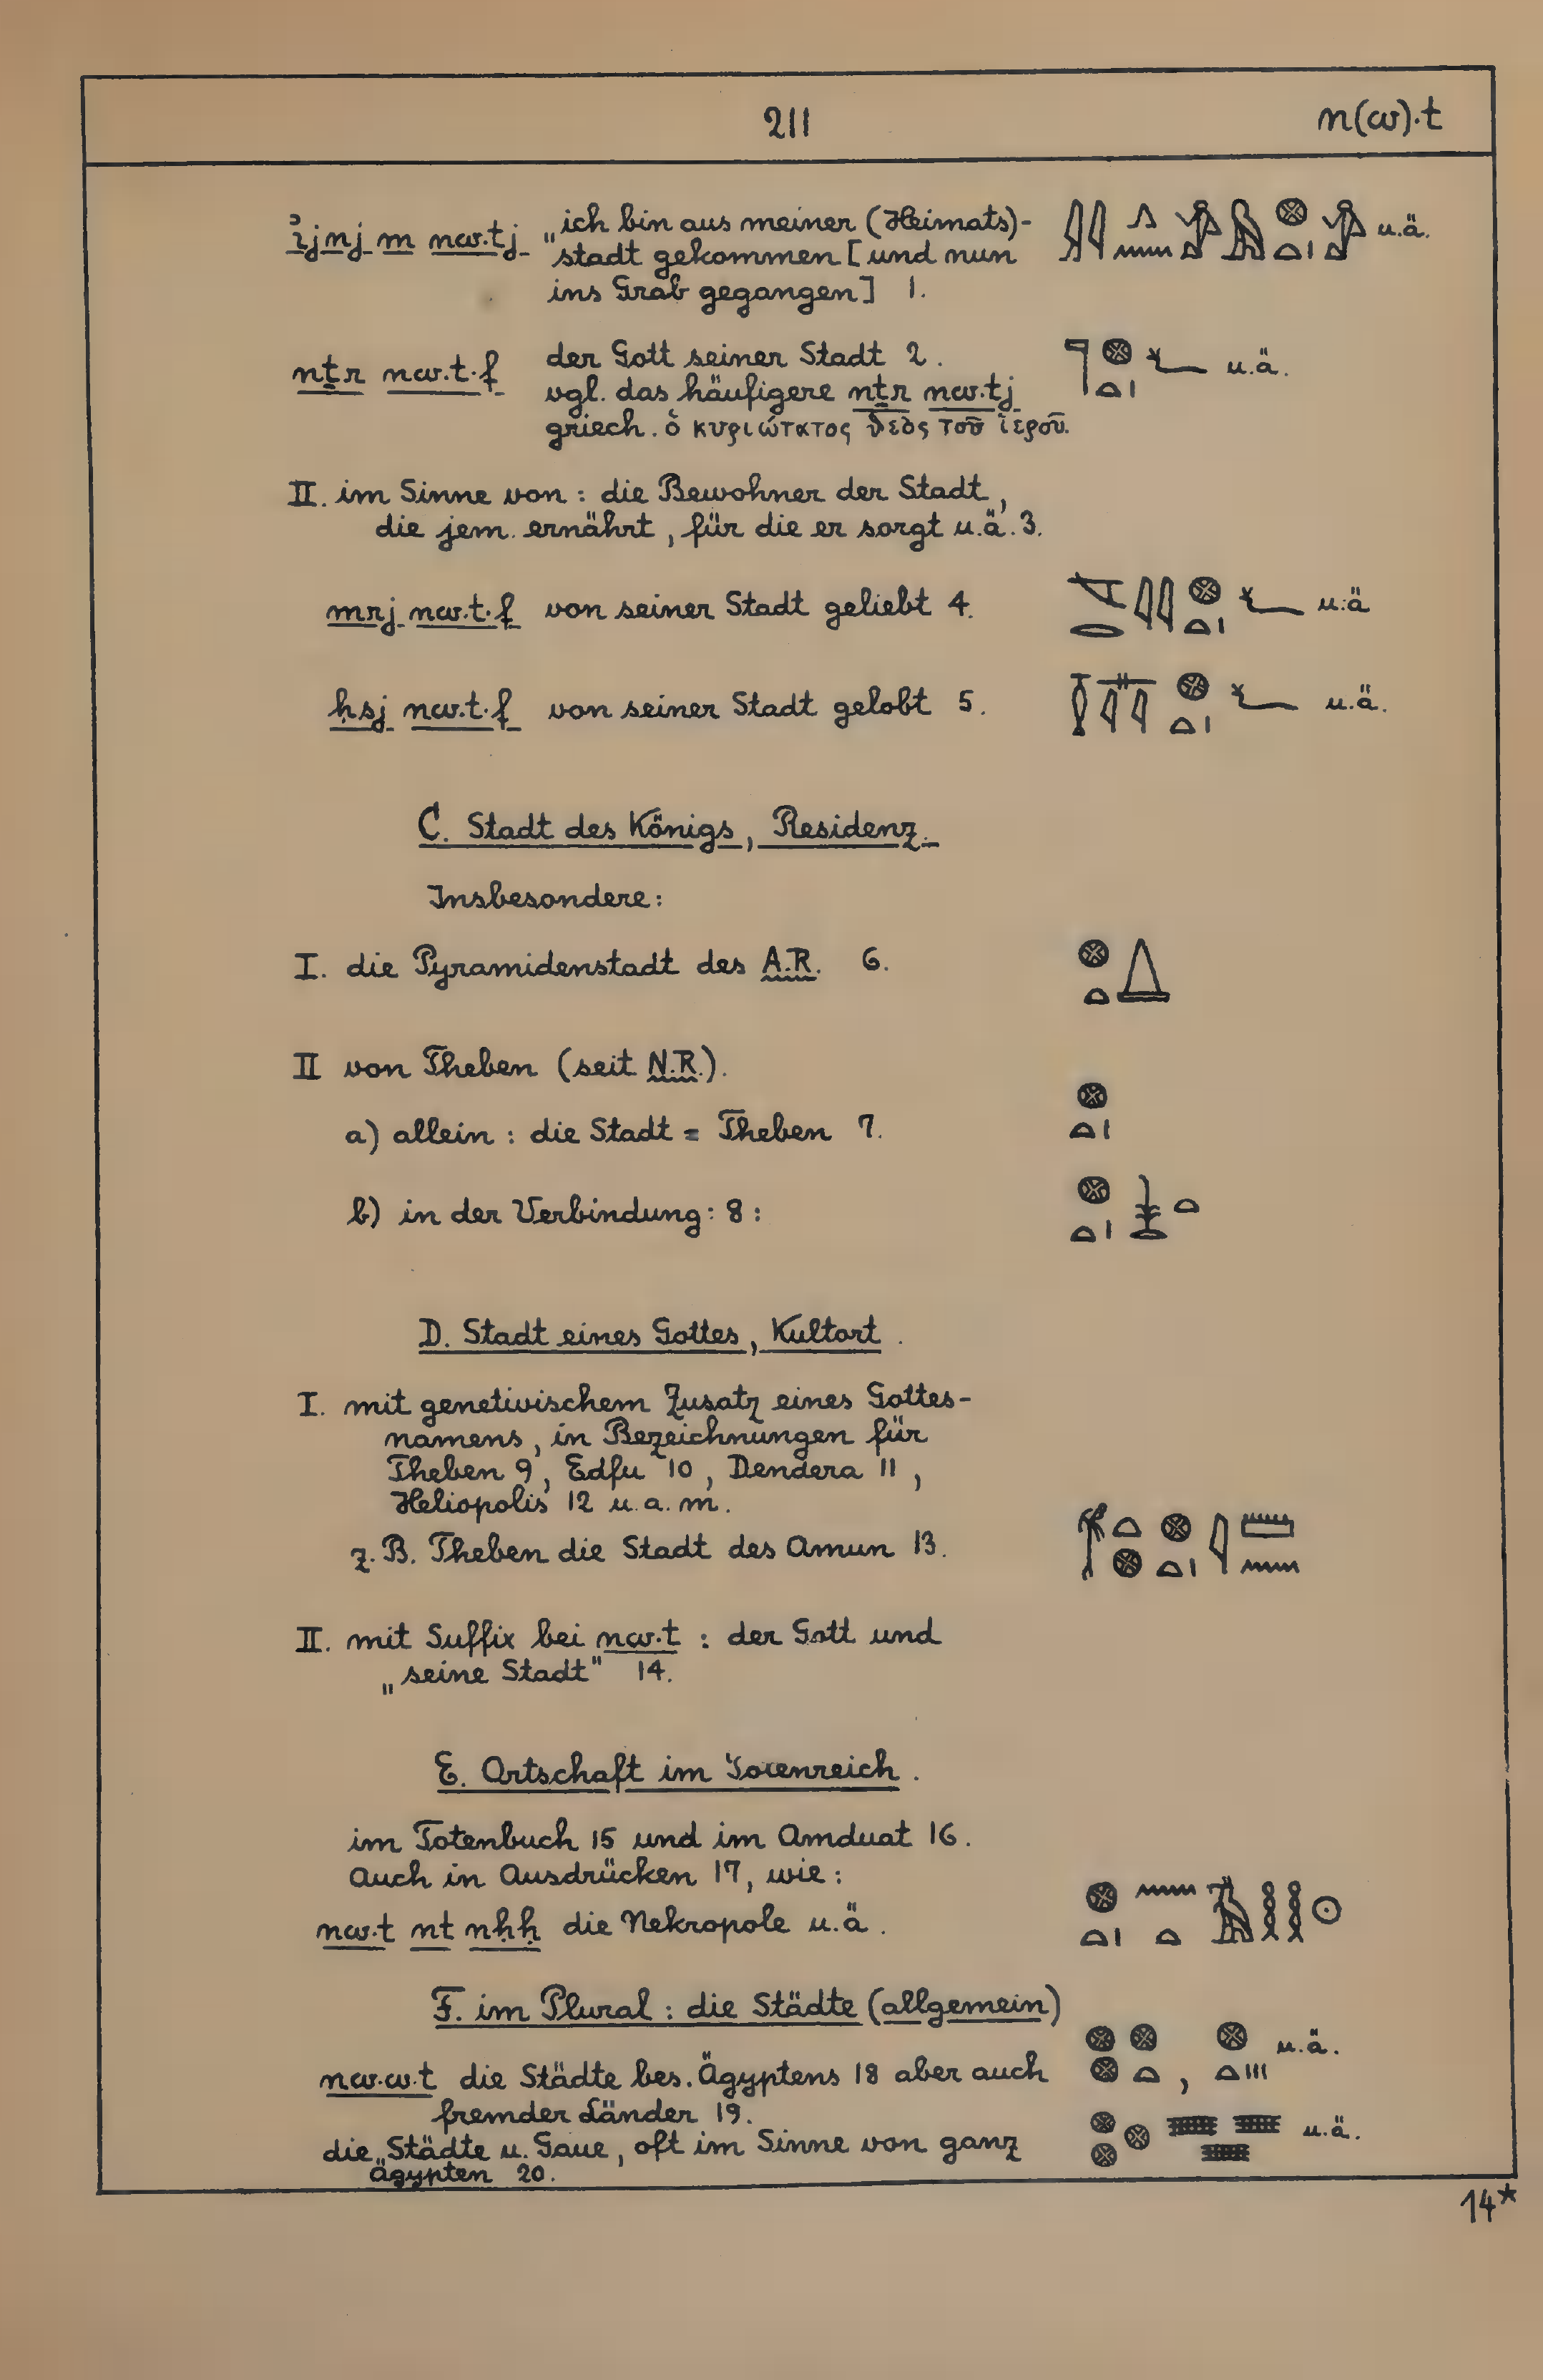 211
n(w)·t
ı͗jnj m nw·tj „ich bin aus meiner (Heimats)-
stadt gekommen [und nun
ins Grab gegangen] 1.
u.ä.
nṯr nw·t·f der Gott seiner Stadt 2.
u.ä.
vgl. das häufigere nṯr nw·tj
griech. ὁ κυριώτατος θεὸς τοῦ ἱεροῦ.
II. im Sinne von: die Bewohner der Stadt,
die jem. ernährt, für die er sorgt u.ä. 3.
mrj nw·t·f von seiner Stadt geliebt 4. u.ä
ḥsj nw·t·f von seiner Stadt gelobt 5. u.ä.
C. Stadt des Königs, Residenz.
Insbesondere:
I. die Pyramidenstadt des A.R. 6.
II von Theben (seit N.R.).
a) allein: die Stadt = Theben 7.
b) in der Verbindung: 8:
D. Stadt eines Gottes, Kultort.
I. mit genetivischem Zusatz eines Gottes-
namens, in Bezeichnungen für
Theben 9, Edfu 10, Dendera 11,
Heliopolis 12 u.a.m.
z.B. Theben die Stadt des Amun 13.
II. mit Suffix bei nw·t : der Gott und
„seine Stadt" 14.
E. Ortschaft im Totenreich.
im Totenbuch 15 und im Amduat 16.
Auch in Ausdrücken 17, wie:
nw·t nt nḥḥ die Nekropole u.ä.
F. im Plural: die Städte (allgemein)
u.ä.
nw·w·t die Städte bes. Ägyptens 18 aber auch
fremder Länder 19.
die „Städte u. Gaue, oft im Sinne von ganz u.ä.
Ägypten 20.
14*